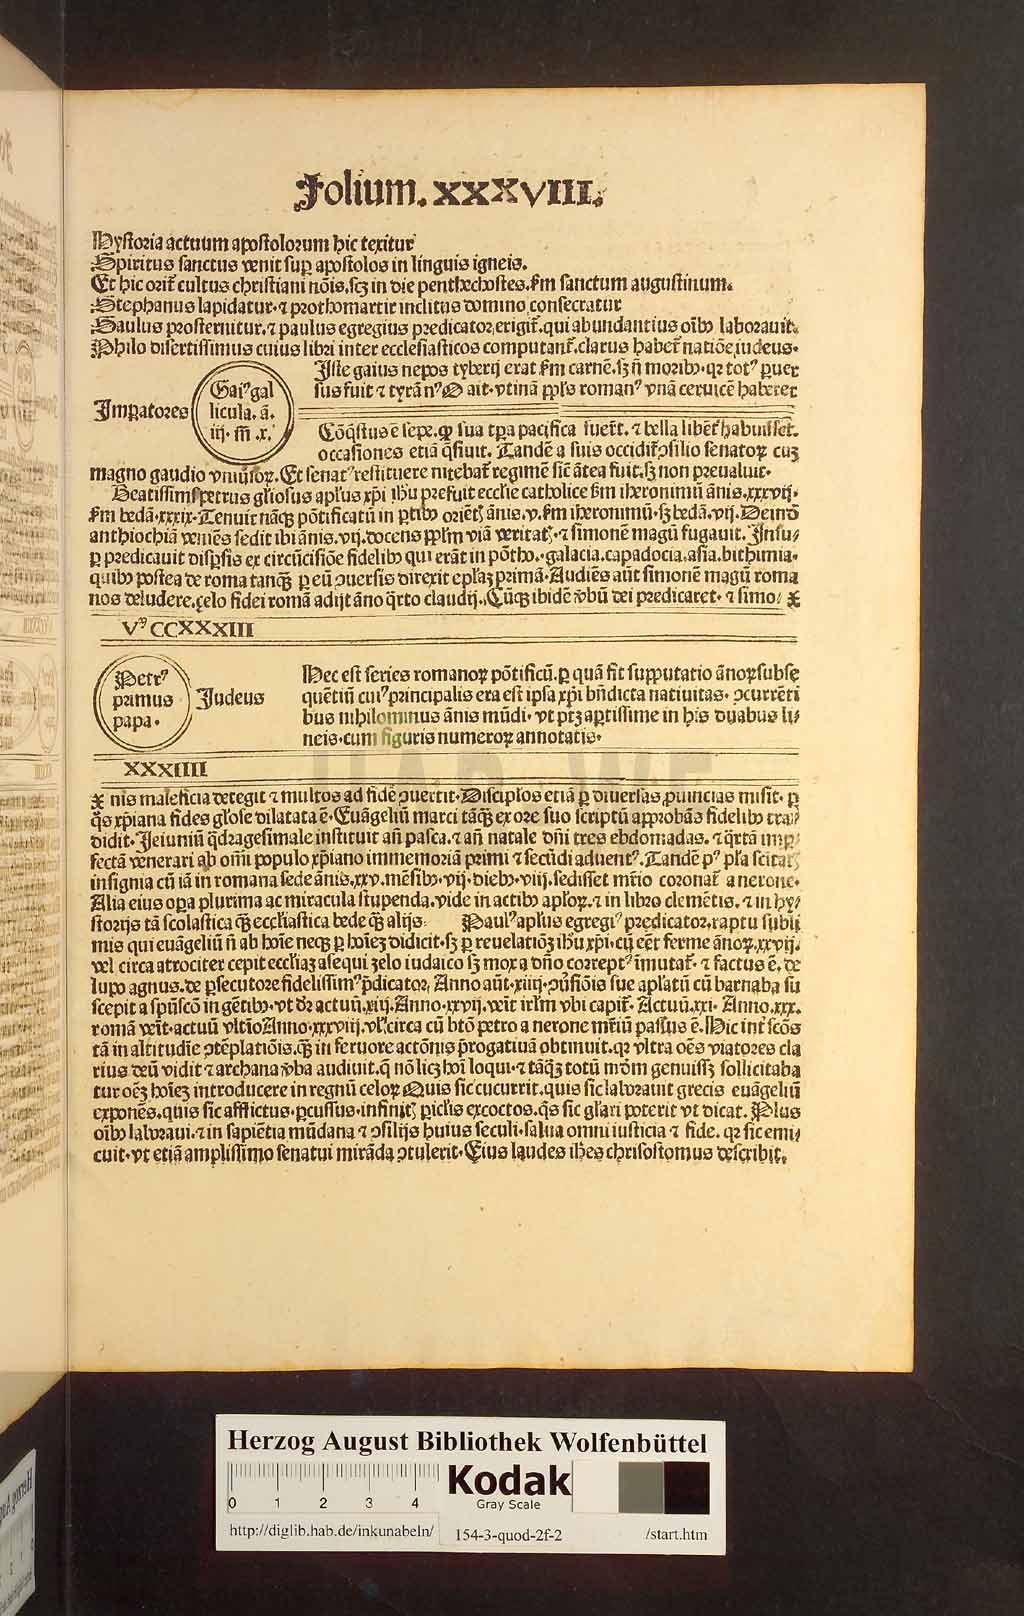 Folium. XXXVIII.
Hystoria actuum apostolorum hic texitur
Spiritus sanctus venit sup apostolos in linguis igneis.
Et hic orit̄ cultus christiani nōis.scz in die penthechostes.s̄m sanctum augustinum.
Stephanus lapidatur. ⁊ prothomartir inclitus domino consecratur
Saulus prosternitur.⁊ paulus egregius predicator erigit̄.qui abundantius oībꝰ laborauit.
Philo disertissimus cuius libri inter ecclesiasticos computant̄.clarus habet̄ natiōe iudeus.
Iste gaius nepos tyberij erat s̄m carnē.sz n̄ moribꝰ.qr totꝰ puer
sus fuit ⁊ tyrānꝰ ait.vtinā ppl̄s romanꝰ vnā ceruicē haberet
Imꝑatores
Gaiꝰ gal
licula. ā.
iij. m̄ .x.
Cōq̄stus ē sepe. ꝙ sua tꝑa pacifica fuer̄t. ⁊ bella libēt̄ habuisset.
occasiones etiā q̄siuit. Tandē a suis occidit̄ ꝯsilio senatoꝝ cuz
magno gaudio vniūsoꝝ. Et senatꝰ restituere nitebat̄ regimē sic̄ ātea fuit.sz non preualuit.
Beatissimꝰ petrus gl̄iosus apl̄us xp̄i ih̄u prefuit eccl̄ie catholice s̄m iheronimū ānis.xxxvij.
s̄m bedā.xxxix. Tenuit nāqꝫ pōtificatū in ꝑtibꝰ oriēt̄ ānis.v. s̄m iheronimū. sz bedā.vij. Deinō
anthiochiā veniēs sedit ibi ānis.vij.docens ppl̄m viā veritat̄. ⁊ simonē magū fugauit. Insu⸗
ꝑ predicauit disꝑsis ex circūcisiōe fidelibꝰ qui erāt in pōtho. galacia.capadocia.asia.bithinia.
quibꝰ postea de roma tanqꝫ ꝑ eū ꝯuersis direxit epl̄az primā. Audiēs aūt simonē magū roma
nos deludere.çelo fidei romā adijt āno q̄rto claudij. Cūqꝫ ibidē v̄bū dei predicaret. ⁊ simo⸗ x
Vᵐ CCXXXIII
Petrꝰ
primus
papa.
Iudeus
Hec est series romanoꝝ pōtificū.ꝑ quā fit supputatio ānoꝝ subse
quētiū cuiꝰ principalis era est ipsa xp̄i bn̄dicta natiuitas. ꝯcurrēti
bus nihilominus ānis mūdi. vt ptz aꝑtissime in his duabus li⸗
neis.cum figuris numeroꝝ annotatis.
XXXIIII
x nis maleficia detegit ⁊ multos ad fidē ꝯuertit. Discipl̄os etiā ꝑ diuersas ꝓuincias misit. ꝑ
q̄s xp̄iana fides gl̄ose dilatata ē. Euāgeliū marci tāqꝫ ex ore suo scriptū approbās fidelibꝰ tra⸗
didit. Ieiuniū q̄dragesimale instituit an̄ pasca.⁊ an̄ natale dn̄i tres ebdomadas. ⁊ q̄rtā imꝑ⸗
fectā venerari ab om̄i populo xp̄iano immemoriā primi ⁊ secūdi aduentꝰ. Tandē pꝰ pl̄a scitat̄
insignia cū iā in romana sede ānis.xxv.mēsibꝰ.vij.diebꝰ.viij.sedisset mr̄io coronat̄ a nerone.
Alia eius oꝑa plurima ac miracula stupenda.vide in actibꝰ apl̄oꝝ.⁊ in libro clemētis. ⁊ in hy⸗
storijs tā scolastica qꝫ eccl̄iastica bede qꝫ alijs. Paulꝰ apl̄us egregiꝰ predicator,raptu subli
mis qui euāgeliū n̄ ab hoīe neqꝫ ꝑ hoīez didicit.sz ꝑ reuelatiōz ih̄u xp̄i.cū eēt ferme ānoꝝ.xxvij.
vel circa atrociter cepit eccl̄iaz aſequi zelo iudaico sz mox a dn̄o correptꝰ īmutat̄. ⁊ factus ē. de
lupo agnus.de ꝑsecutore fidelissimꝰ p̄dicator, Anno aūt.xiiij.ꝯūsiōis sue apl̄atū cū barnaba su
scepit a spūscō in gētibꝰ.vt dr̄ actuū.xiij. Anno.xxvij.veīt irl̄m vbi capit̄. Actuū.xxi. Anno.xxx.
romā veīt.actuū vltīo Anno.xxxviij.vl̄ circa cū btō petro a nerone mr̄iū passus ē. Hic int̄ scōs
tā in altitudīe ꝯtēplatiōis.qꝫ in feruore actōnis p̄rogatiuā obtinuit.qr vltra oēs viatores cla
rius deū vidit ⁊ archana v̄ba audiuit.q̄ nō licz hoī loqui.⁊ tāqꝫ totū mōm genuissz sollicitaba
tur oēz hoīez introducere in regnū celoꝝ Quis sic cucurrit.quis sic laborauit grecis euāgeliū
exponēs.quis sic afflictus.ꝑcussus.infinit̄ pic̄lis excoctos.q̄s sic gl̄ari poterit vt dicat. Plus
oībꝰ laboraui.⁊ in sapiētia mūdana ⁊ ꝯsilijs huius seculi.salua omni iusticia ⁊ fide. qr sic emi⸗
cuit.vt etiā amplissimo senatui mirāda ꝯtulerit. Eius laudes ihes chrisostomus describit.
HAB WF
Herzog August Bibliothek Wolfenbüttel
0 1 2 3 4
Kodak
Gray Scale
http://diglib.hab.de/inkunabeln/ 154-3-quod-2f-2 /start.htm